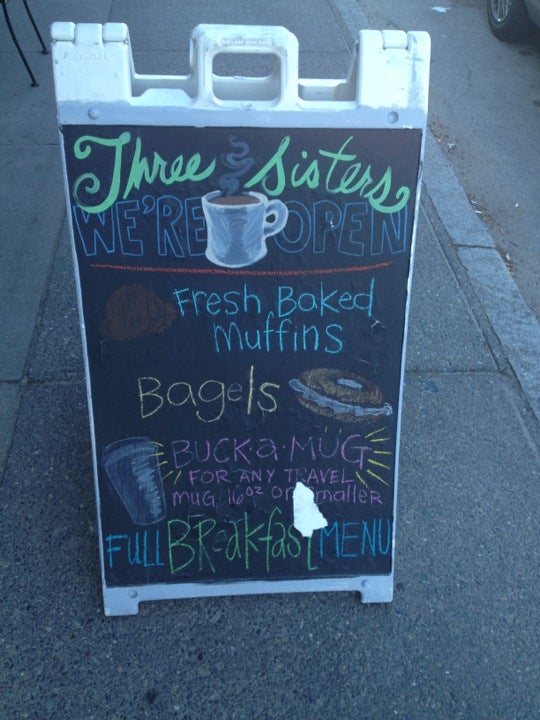 Three Sisters
WE'RE OPEN
Fresh Baked
Muffins
Bagels
BUCK·a·MUG
FOR ANY TRAVEL
muG 16oz or smalleR
FULL BReakfast MENU